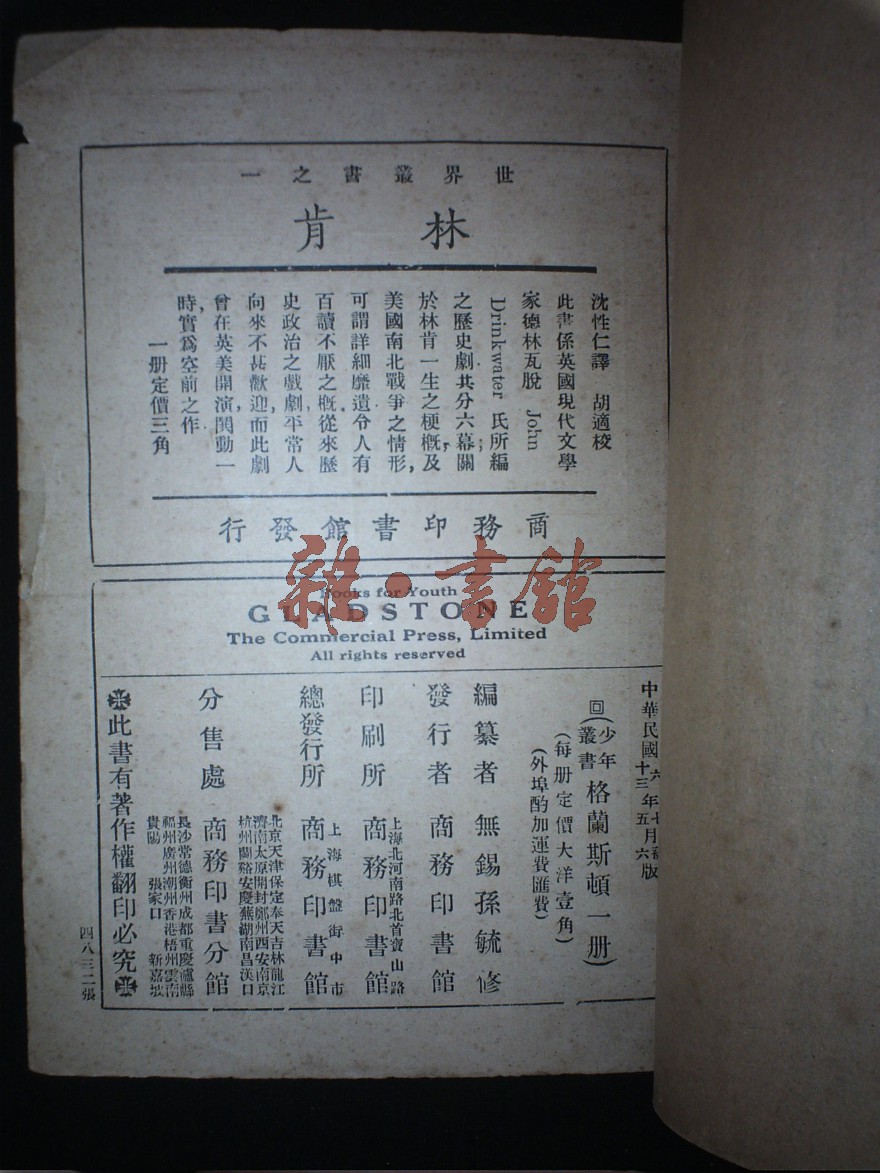 世界叢書之一
林肯
沈性仁譯 胡適校
此書係英國現代文學
家德林瓦脫 John
Drinkwater 氏所編
之歷史劇共分六幕;關
於林肯一生之梗概,及
美國南北戰爭之情形,
可謂詳細靡遺令人有
百讀不厭之概.從來歷
史政治之戲劇,平常人
向來不甚歡迎,而此劇
曾在英美開演鬨動一
時,實爲空前之作
一册定價三角
商務印書館發行
雜·書館
Books for Youth
GLADSTONE
The Commercial Press, Limited
All rights reserved
中華民國六年七月初版
十三年五月六版
回(少年叢書)格蘭斯頓一册)
(每册定價大洋壹角)
(外埠酌加運費匯費)
編纂者 無錫孫毓修
發行者 商務印書館
印刷所 上海北河南路北首寶山路 商務印書館
總發行所 上海棋盤街中市 商務印書館
分售處 商務印書分館
北京天津保定奉天吉林龍江
濟南太原開封鄭州西安南京
杭州蘭谿安慶蕪湖南昌漢口
長沙常德衡州成都重慶瀘縣
福州廣州潮州香港梧州雲南
貴陽 張家口 新嘉坡
此書有著作權翻印必究
四八三二張